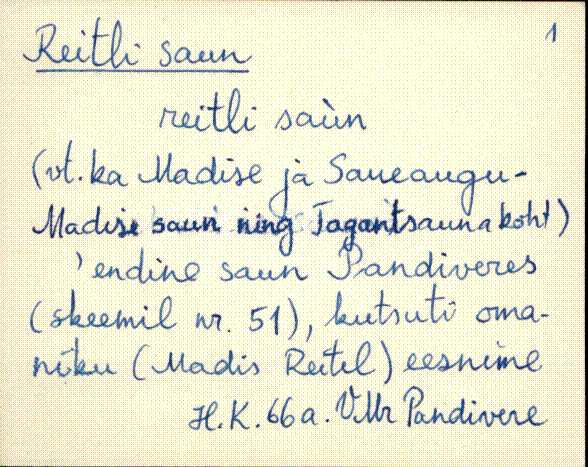 1
Reitli saun
reitli saùn
(vt. ka Madise ja Saueaugu-
Madise saun ning Tagantsauna koht)
'endine saun Pandiveres
(skeemil nr. 51), kutsuti oma-
niku (Madis Reitel) eesnime
H.K. 66a. VMr Pandivere